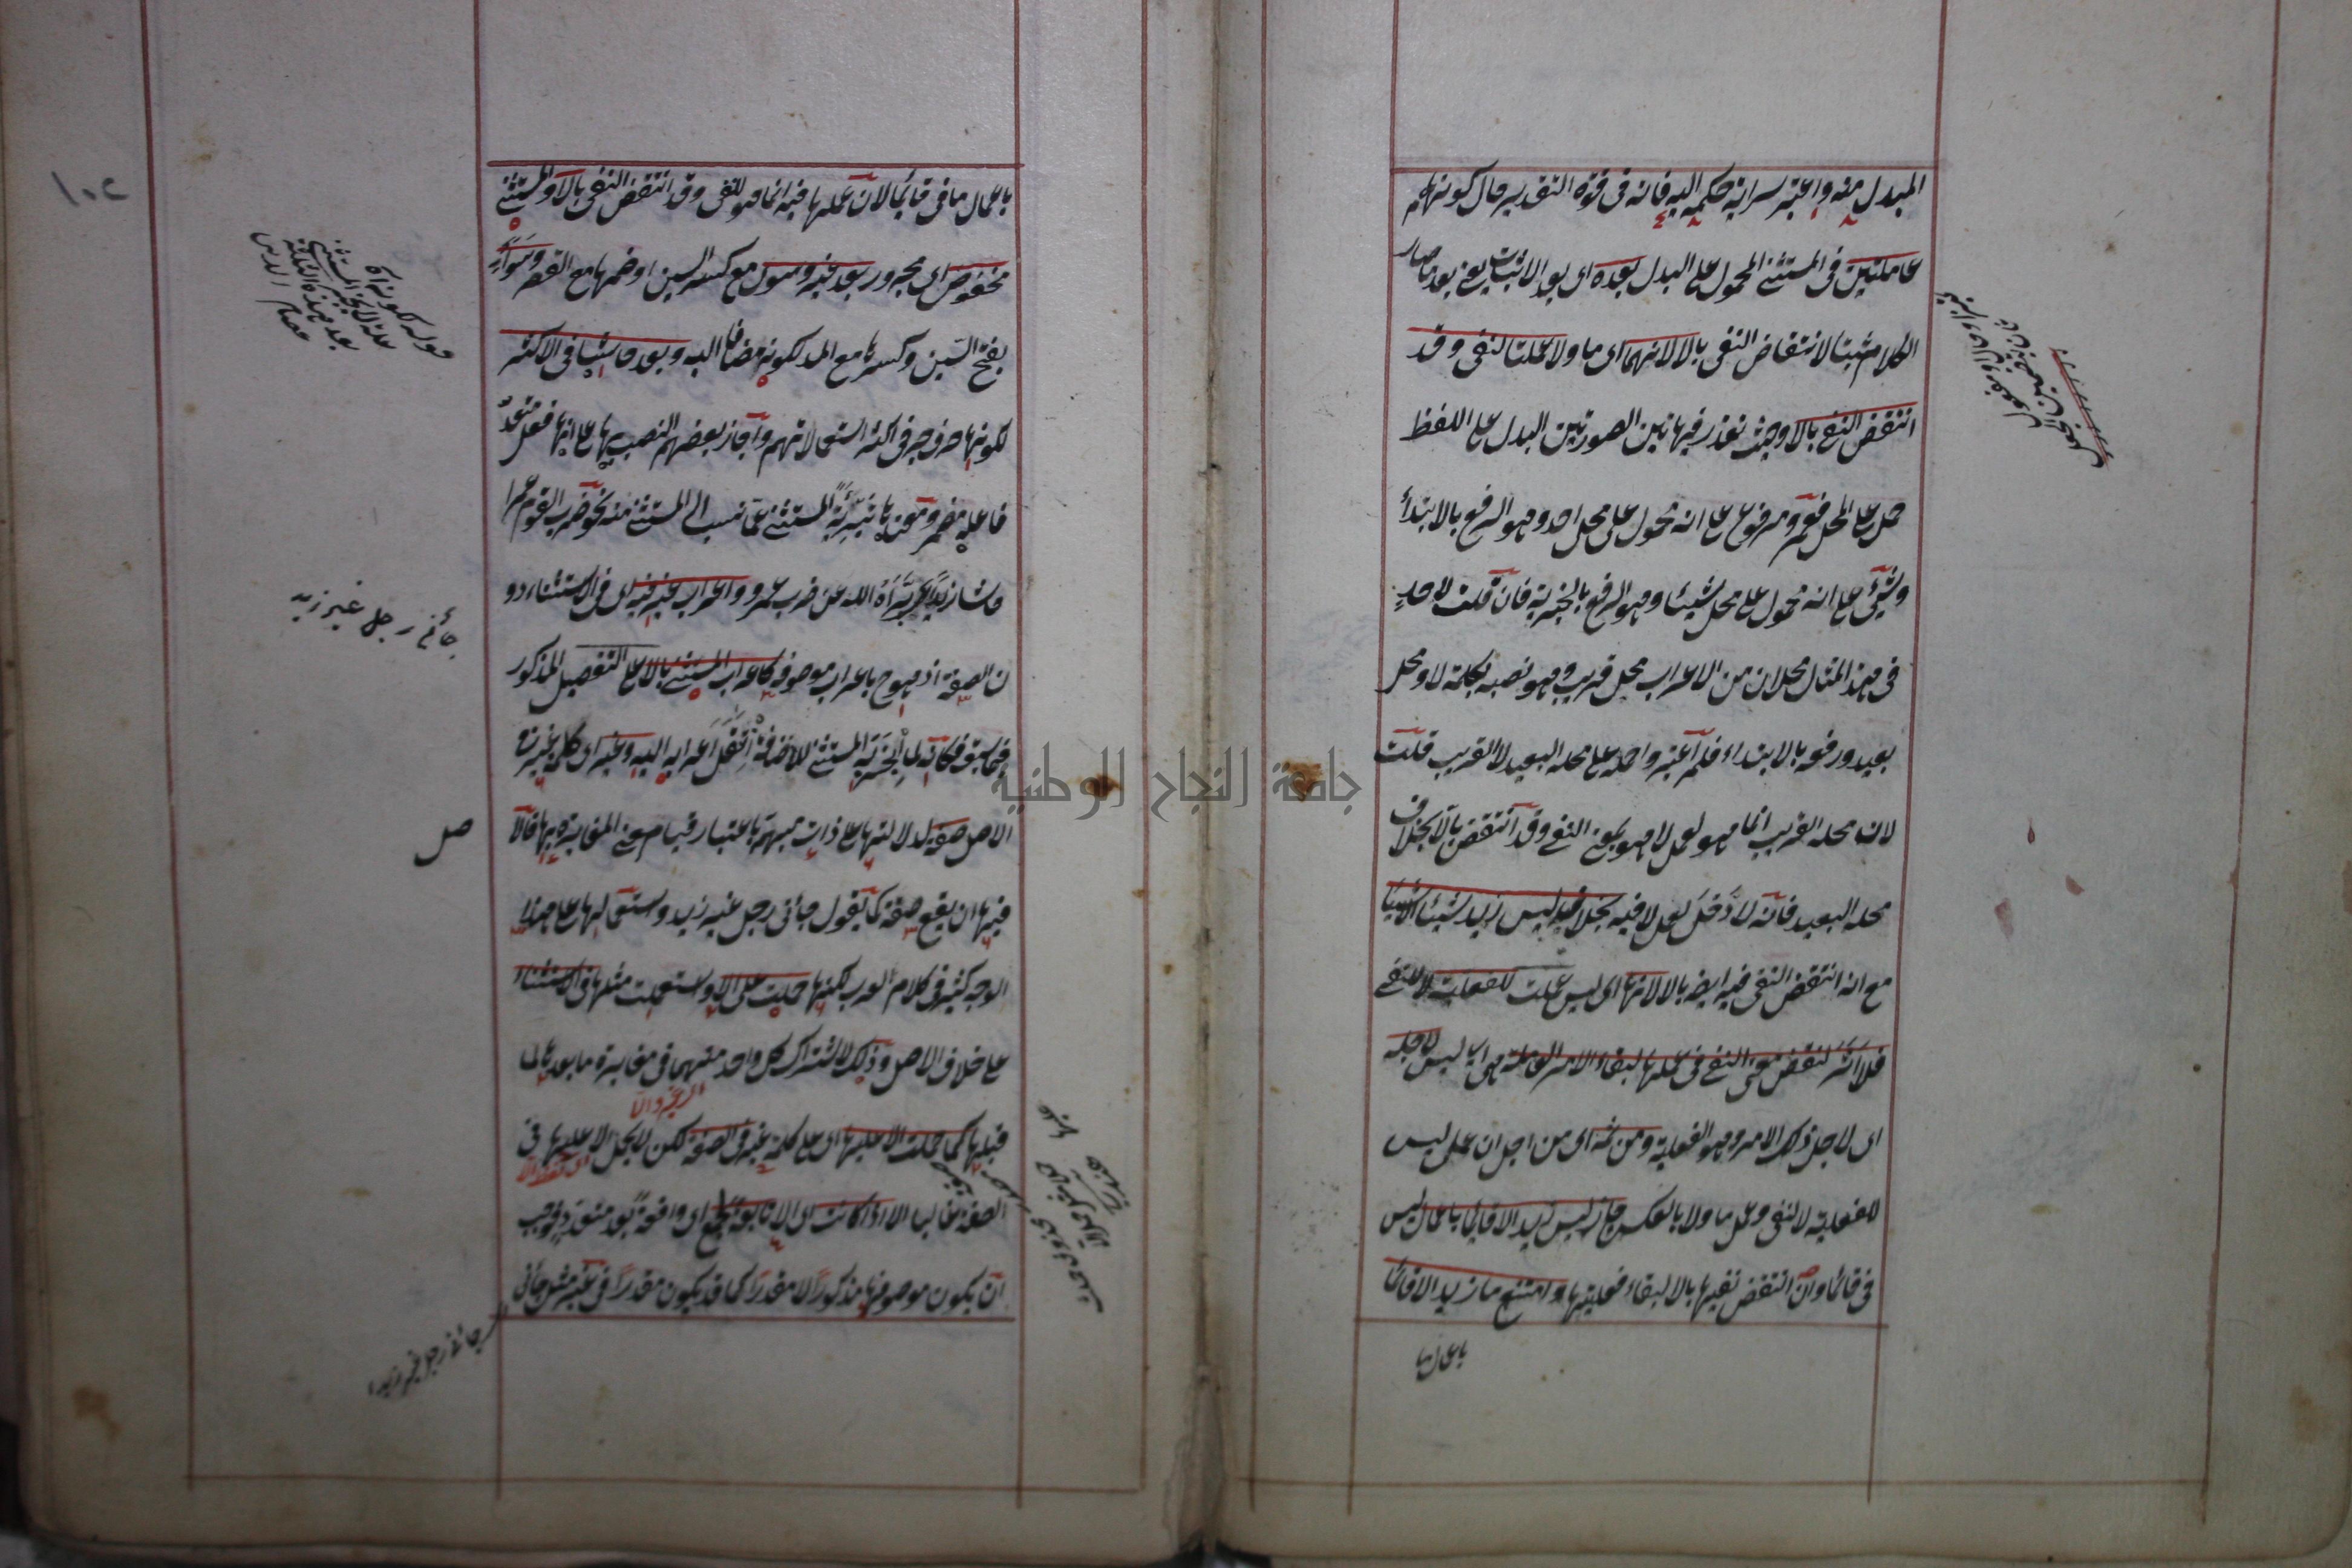 المبدل منه واعتبر سراية حكمه اليه فانه في قوة التقدير حال كونهما
عاملتين في المستثنى المحمول على البدل بعده اى بعد الاثبات يعنى بعد ما صار
الكلام مثبتا لانتقاض النفى بالا لانهما اى ما ولا عملتا لنفى وقد
انتقض النفى بالا وحيث تعذر في هاتين الصورتين البدل على اللفظ
حمل على المحل فعمرو مرفوع على انه محمول على محل احد وهو الرفع بالابتدأ
وشئ على انه محمول على محل شيئا وهو الرفع بالخبرية فان قلت لاحدٍ
في هذا المثال محلان من الاعراب محل قريب وهو نصبه بكلمة لا ومحل
بعيد ورفعه بالابتداء فلم اعتبر واحمله على محله البعيد لا القريب قلت
لان محله القريب انما هو لعمل لا هو بمعنى النفى وقد انتقض بالا بخلاف
محله البعيد فانه لا دَخَلَ لعمل لا فيه بخلاف ليس زيد شيئا الا شيئا
مع انه انتقض النفى فيه ايضا بالا لانها اى ليس عملت للفعلية لا للنفى
فلا اثَرَ لنقض معنى النفى في عملها لبقاء الامر العاملة هى اى ليس لاجله
اى لاجل ذلك الامر وهو الفعلية ومن ثمه اى من اجل ان عمل ليس
للفعلية لا للنفى وعمل ما ولا بالعكس جاز ليس زيد الا قائما باعمال ليس
في قائما وان انتقض نفيها بالا لبقاء فعليتها وامتنع ما زيد الا قائما
باعمال ما
باعمال ما في قائما لان عملها فيه انما هو للنفى وقد انتقض النفى بالا والمستثنى
مخفوض اى مجرور بعد غير وسوى مع كسر السين او ضمها مع القصر وسواءٍ
بفتح السين وكسرها مع المد لكونه مضافا اليه وبعد حاشا في الاكثر
لكونها حرف جر في اكثر استعمالاتهم واجاز بعضهم النصب بها على انها فعل متعد
فاعله مضمر ومعناها تبرئة المستثنى عما نسب الى المستثنى منه نحو ضرب القوم عمرا
حاشا زيداً اى برّأه الله عن ضرب عمرو واعراب غير فيه اى في الاستثناء دو
ن الصفة اذ هو ح باعراب موصوفه كاعراب المستثنى بالا على التفصيل المذكور
فيما سبق فكانه لما انجر به المستثنى للاضافة انتقل اعرابه اليه وغير اى كلمة غير في
الاصل صفة لدلالتها على ذات مبهمة باعتبار قيام معنى المغايرة بها فالا
فيها ان يقع صفة كما تقول جائنى رجل غير زيد واستعمالها على هذا
الوجه كثير في كلام العرب لكنها حملت على الا واستعملت مثلها في الاستثناء
على خلاف الاصل وذلك لاشتراك كل واحد منهما في مغايرة ما بعدها لما
قبلها كما حملت الا عليها اى على كلمة غير في الصفة لكن لا يحمل الا عليها في
الصفة غالبا الا اذا كانت اى الا تابعة لجمع اى واقعة بعد متعدد فوجب
ان يكون موصوفها مذكورا لا مقدرا كما قد يكون مقدرا في غير مثل جائنى
قوله لكونه اه
علة لانجرار المستثنى
بعد هذه الثلثة
عصام الدين
جائنى رجل غير زيد
صل
جائنى رجل غير زيد
١٠٢
جامعة النجاح الوطنية